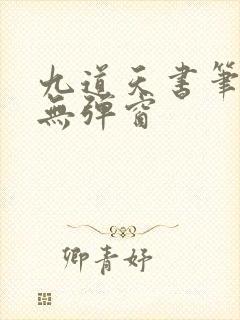 九道天书筆
無弹窗
卿青妤